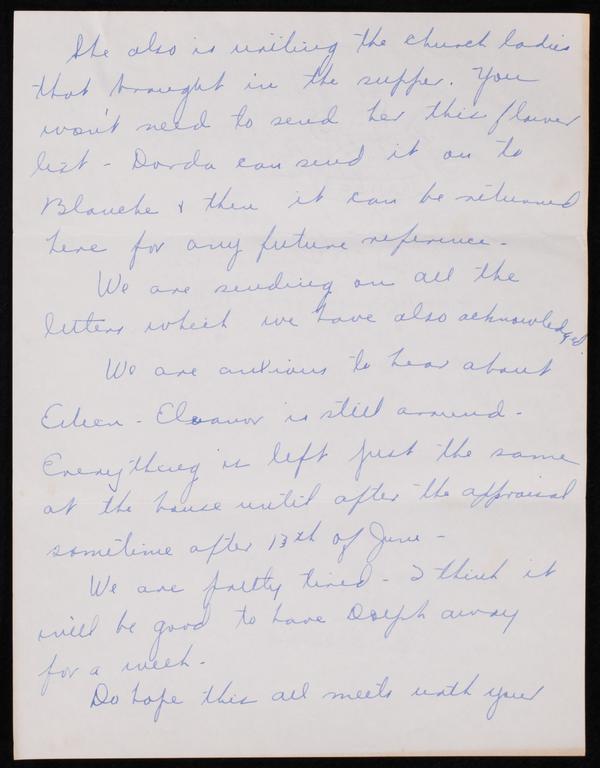 She also is writing the church ladies
that brought in the supper. You
won't need to send her this flower
list - Dorda can send it on to
Blanche & then it can be returned
here for any future reference -
We are sending on all the
letters which we have also acknowledged.
We are anxious to hear about
Eileen - Eleanor is still around -
Everything is left just the same
at the house until after the appraisal
sometime after 13th of June -
We are pretty tired - I think it
will be good to have Dolph away
for a week -
Do hope this all meets with your